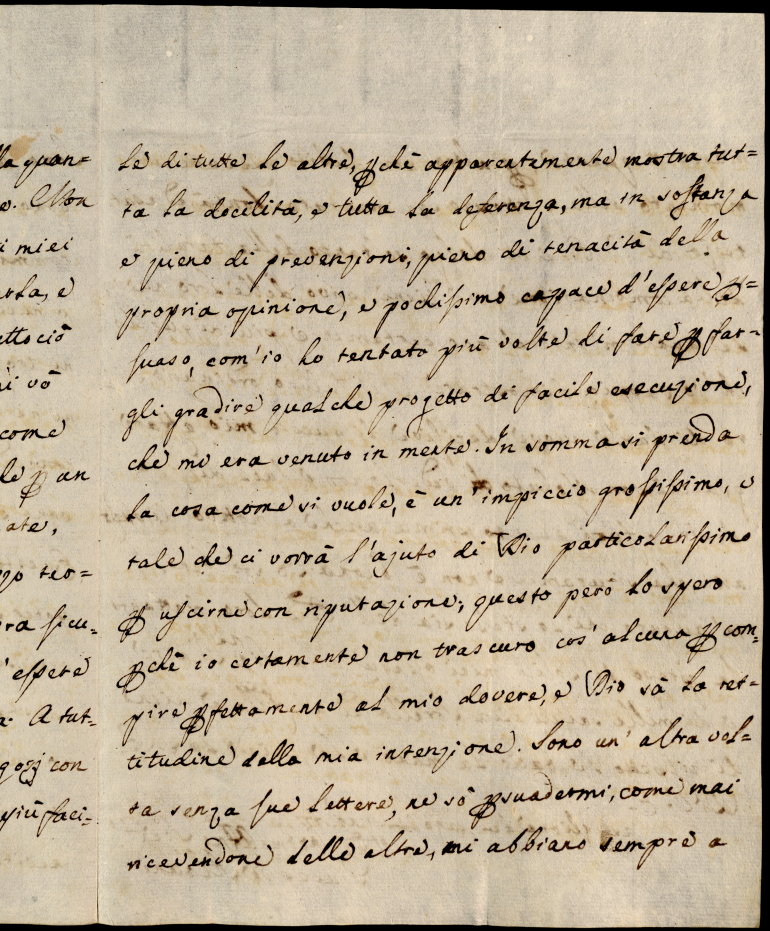 lla quan=
e. Mon
i miei
arla, e
uttociò
ni vò
come
le ꝑ un
ate,
zo ter=
ra sicu-
' essere
a. A tut-
gozj con
più faci-
le di tutte le altre, ꝑchè apparentemente mostra tut=
ta la docilità, e tutta la deferenza, ma in sostanza
e pieno di prevenzioni, pieno di tenacità della
propria opinione, e pochissimo capace d'essere ꝑ=
suaso, com'io ho tentato più volte di fare ꝑ far-
gli gradire qualche progetto di facile esecuzione,
che mi era venuto in mente. In somma si prenda
la cosa come si vuole, è un' impiccio grossissimo, e
tale che ci vorrà l'ajuto di Dio particolarissimo
ꝑ uscirne con riputazione; questo però lo spero
ꝑchè io certamente non trascuro cos' alcuna ꝑ com-
pire ꝑfettamente al mio dovere, e Dio sà la ret-
titudine della mia intenzione. Sono un' altra vol-
ta senza sue lettere, ne sò ꝑsuadermi, come mai
ricevendone delle altre, mi abbiano sempre a